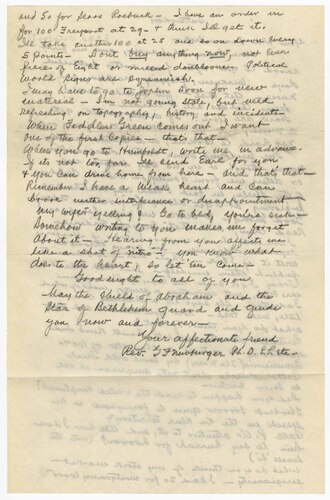 and 50 for Sears Roebuck — I have an order in
for 100 Freeport at 29 — I think I'll get it.
I'll take another 100 at 25 and so on down every
5 points — Don't buy anything now, not even
pieces of eight or milled doubloons — Political
World signs are squeamish.
I may have to go to Joplin soon for new
material — I'm not going stale, but need
refreshing on topography, history and incidents —
When Toddlin' Green comes out I want
one of the first copies — that's that —
When you go to Humboldt, write me in advance.
If its not too far I'll send Earl for you
& you can drive home from here — and that's that —
Remember I have a weak heart and can
brook neither interference or disappointment —
My wife's yelling! Go to bed, you're sick —
Somehow writing to you makes me forget
about it — Hearing from you affects me
like a shot of 'nitro — you know what
does to the heart, so let 'em come —
Goodnight to all of you
May the Shield of Abraham and the
Star of Bethlehem guard and guide
you now and forever —
Your affectionate friend
Rev. G Ph. D.